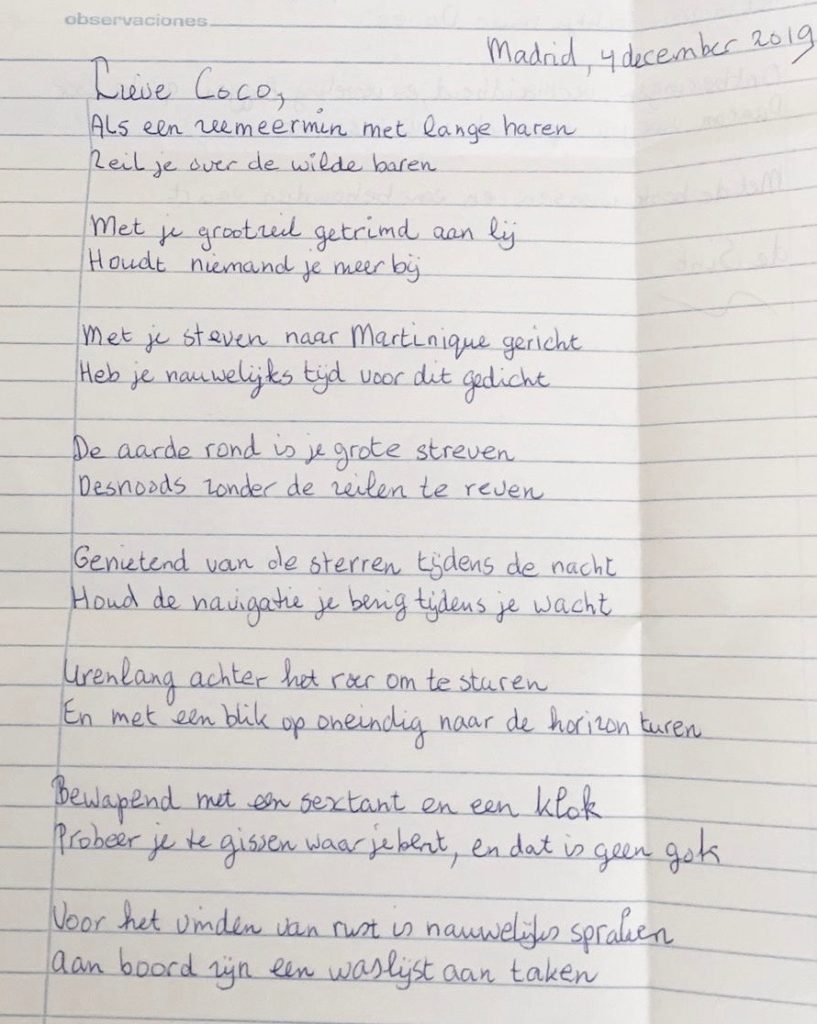 observaciones
Madrid, 4 december 2019
Lieve Coco,
Als een zeemeermin met lange haren
Zeil je over de wilde baren
Met je grootzeil getrimd aan lij
Houdt niemand je meer bij
Met je steven naar Martinique gericht
Heb je nauwelijks tijd voor dit gedicht
De aarde rond is je grote streven
Desnoods zonder de zeilen te reven
Genietend van de sterren tijdens de nacht
Houd de navigatie je bezig tijdens je wacht
Urenlang achter het roer om te sturen
En met een blik op oneindig naar de horizon turen
Bewapend met een sextant en een klok
Probeer je te gissen waar je bent, en dat is geen gok
Voor het vinden van rust is nauwelijks spraken
aan boord zijn een waslijst aan taken